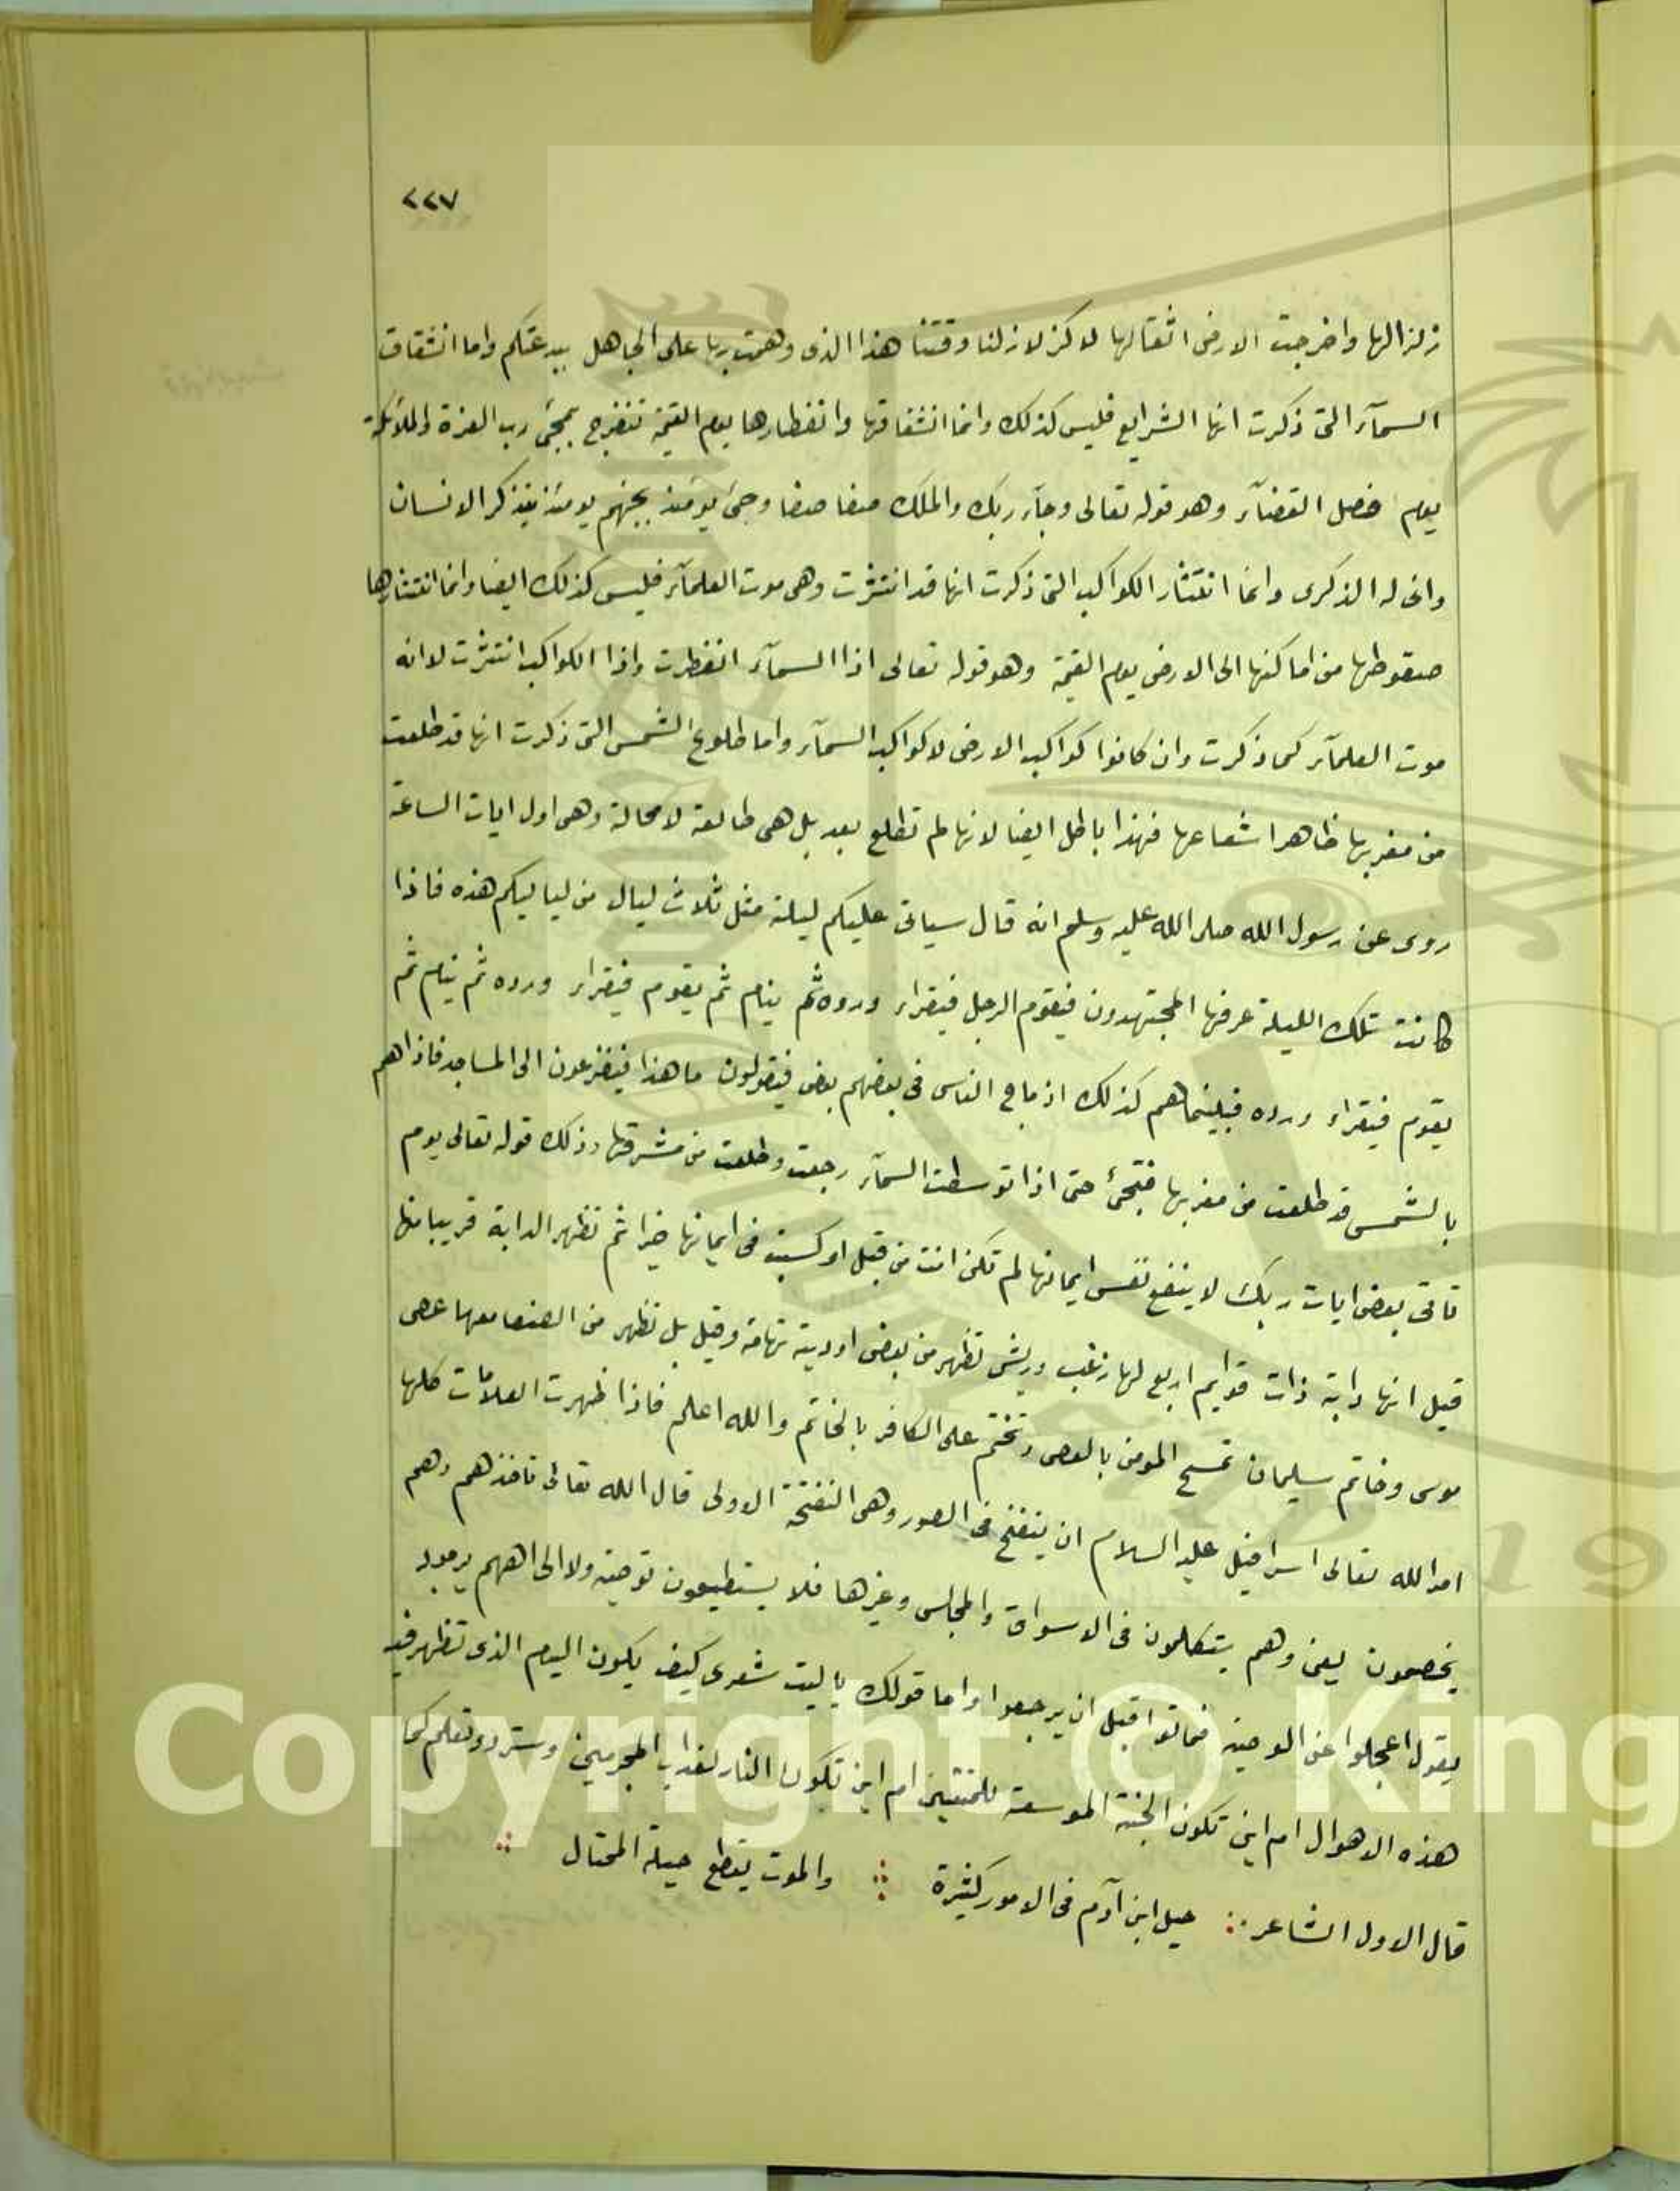 ٢٢٧
زلزالها واخرجت الارض اثقالها لا كزلازلنا وقتنا هذا الذى وهمت بها على الجاهل ببدعتكم واما انشقاق
السمآء التى ذكرت انها الشرايع فليس كذلك وانما انشقاقها وانفطارها يوم القيمة تنفرج بمجئ رب العزة والملائكة
يوم فصل القضآء وهو قوله تعالى وجآء ربك والملك صفا صفا وجئ يومئذ بجهنم يومئذ يتذكر الانسان
وانى له الذكرى وانما انتثار الكواكب التى ذكرت انها قد انتثرت وهى موت العلمآء فليس كذلك ايضا وانما انتثارها
صقوطها من اماكنها الى الارض يوم القيمة وهو قوله تعالى اذا السمآء انفطرت واذا الكواكب انتثرت لا انه
موت العلمآء كما ذكرت وان كانوا كواكب الارض لا كواكب السمآء واما طلوع الشمس التى ذكرت انها قد طلعت
من مغربها ظاهرا شعاعها فهذا باطل ايضا لانها لم تطلع بعد بل هى طالعة لا محالة وهى اول ايات الساعة
روى عن رسول الله صلى الله عليه وسلم انه قال سياتى عليكم ليلة مثل ثلاث ليال من لياليكم هذه فاذا
كانت تلك الليلة عرفها المجتهدون فيقوم الرجل فيقراء ورده ثم ينام ثم يقوم فيقراء ورده ثم ينام ثم
يقوم فيقراء ورده فبينماهم كذلك اذ ماج الناس فى بعضهم بعض فيقولون ما هذا فيفزعون الى المساجد فاذاهم
بالشمس قد طلعت من مغربها فتجئ حتى اذا توسطت السمآء رجعت وطلعت من مشرقها وذلك قوله تعالى يوم
تاتى بعض ايات ربك لا ينفع نفس ايمانها لم تكن امنت من قبل او كسبت فى ايمانها خيرا ثم تظهر الدابة قريبا منها
قيل انها دابة ذات قوايم اربع لها زغب وريش تظهر من بعض اودية تهامة وقيل بل تظهر من الصفا معها عصى
موسى وخاتم سليمان تمسح المومن بالعصى وتختم على الكافر بالخاتم والله اعلم فاذا ظهرت العلامات كلها
امر الله تعالى اسرافيل عليه السلام ان ينفخ فى الصور وهى النفخة الاولى قال الله تعالى تاخذهم وهم
يخصمون يعنى وهم يتكلمون فى الاسواق والمجالس وغيرها فلا يستطيعون توصية ولا الى اهلهم يرجعون
يقول اعجلوا عن الوصية فماتوا قبل ان يرجعوا واما قولك ياليت شعرى كيف يكون اليوم الذى تظهر فيه
هذه الاهوال ام اين تكون الجنة الموسعة للمتقين ام اين تكون النار لعذاب المجرمين وسترد وتعلم كما
قال الاول الشاعر حيل ابن آدم فى الامور كثيرة والموت يقطع حيلة المحتال
Copyright © King
19